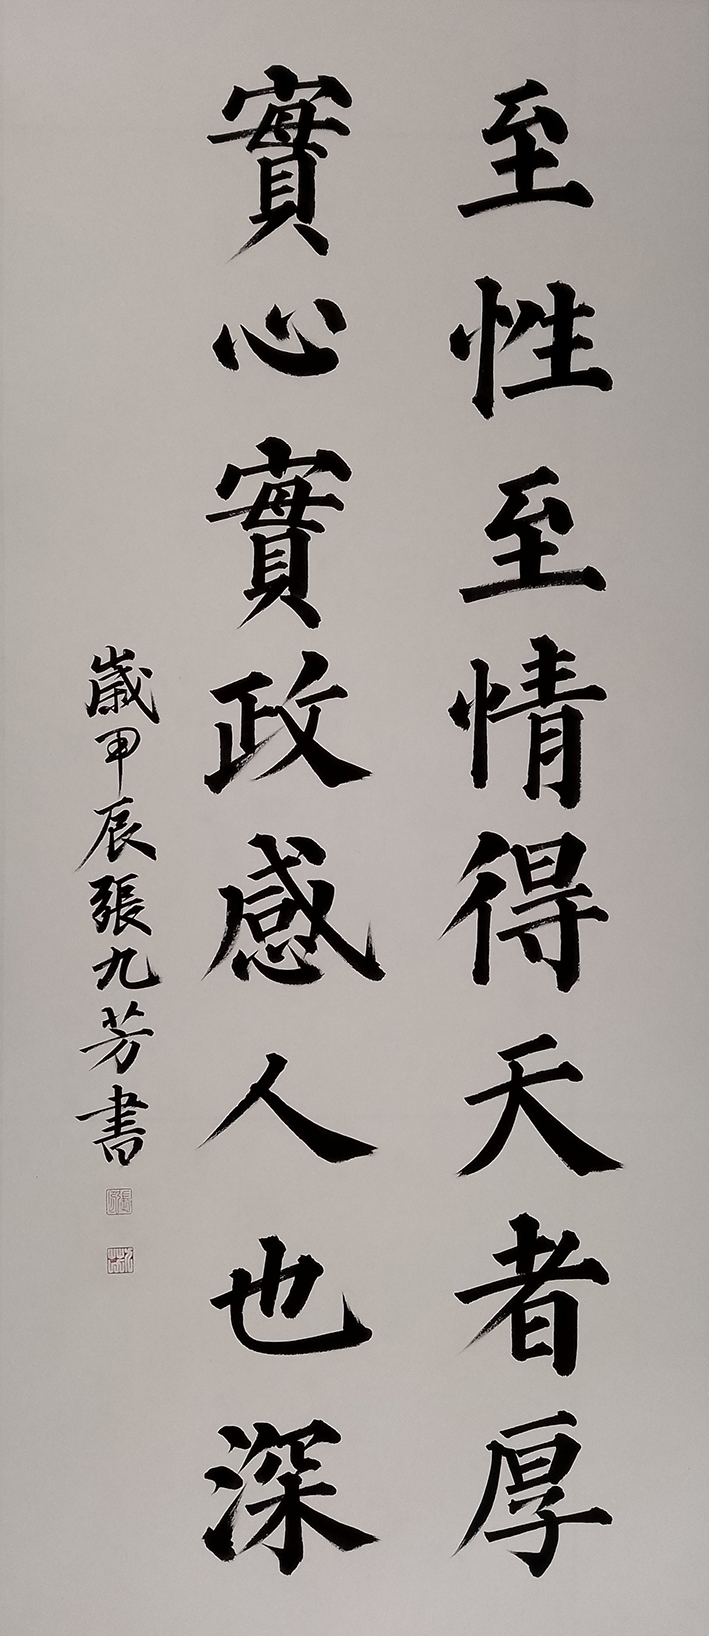 至性至情得天者厚
實心實政感人也深
歲甲辰張九芳書